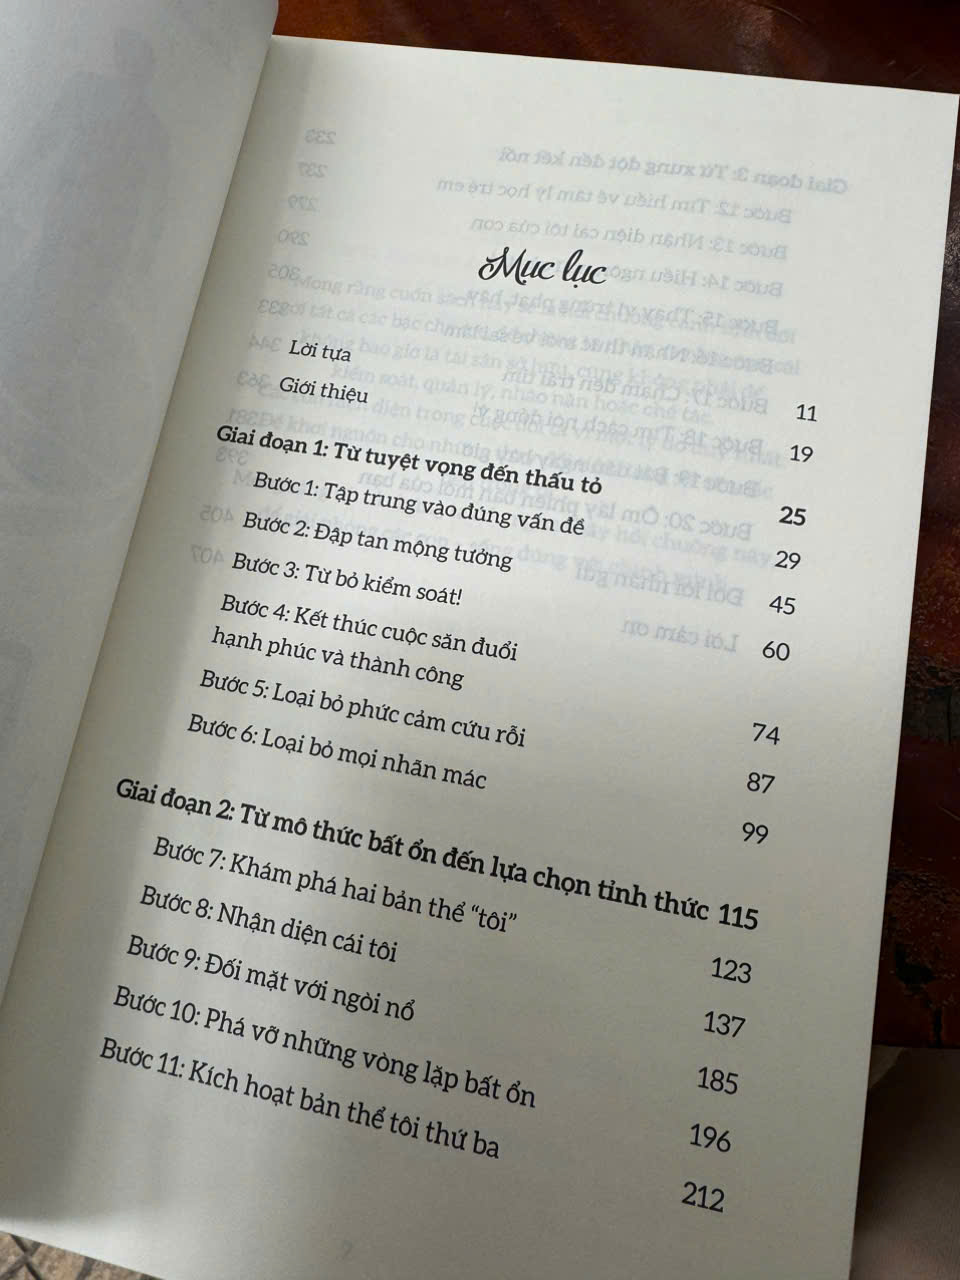 Mục lục
Lời tựa 11
Giới thiệu 19
Giai đoạn 1: Từ tuyệt vọng đến thấu tỏ 25
Bước 1: Tập trung vào đúng vấn đề 29
Bước 2: Đập tan mộng tưởng 45
Bước 3: Từ bỏ kiểm soát! 60
Bước 4: Kết thúc cuộc săn đuổi
hạnh phúc và thành công 74
Bước 5: Loại bỏ phức cảm cứu rỗi 87
Bước 6: Loại bỏ mọi nhãn mác 99
Giai đoạn 2: Từ mô thức bất ổn đến lựa chọn tỉnh thức 115
Bước 7: Khám phá hai bản thể “tôi” 123
Bước 8: Nhận diện cái tôi 137
Bước 9: Đối mặt với ngòi nổ 185
Bước 10: Phá vỡ những vòng lặp bất ổn 196
Bước 11: Kích hoạt bản thể tôi thứ ba 212